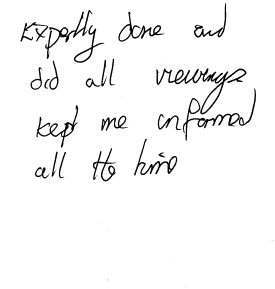 Expertly done and
did all viewings
kept me informed
all the time